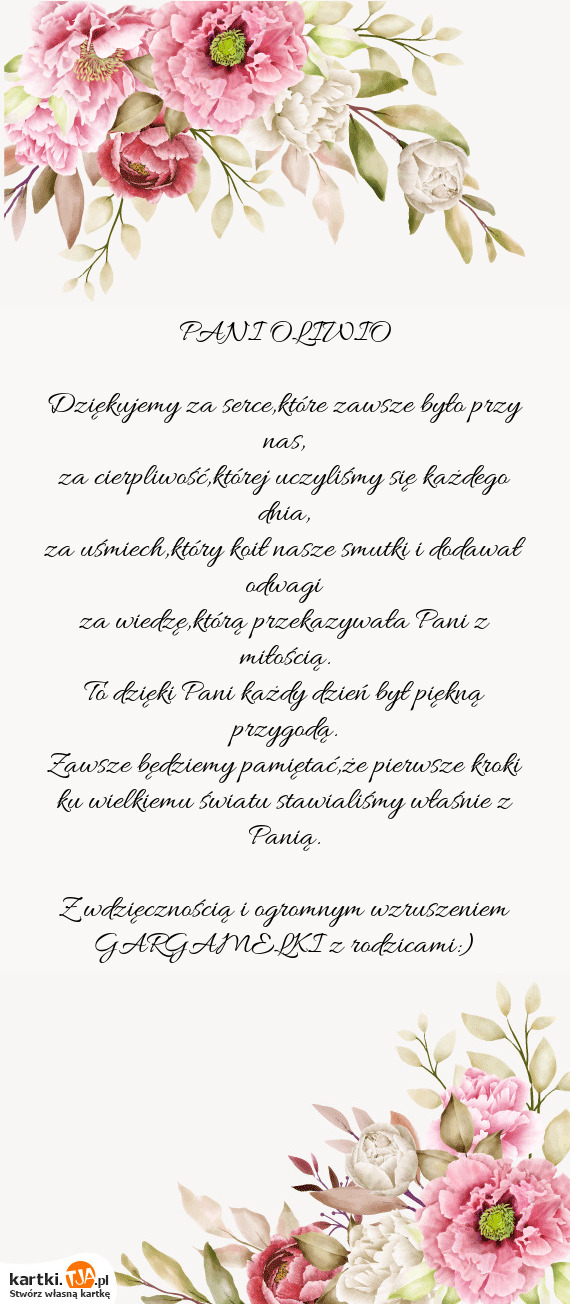 PANI OLIWIO
Dziękujemy za serce,które zawsze było przy
nas,
za cierpliwość,której uczyliśmy się każdego
dnia,
za uśmiech,który koił nasze smutki i dodawał
odwagi
za wiedzę,którą przekazywała Pani z
miłością.
To dzięki Pani każdy dzień był piękną
przygodą.
Zawsze będziemy pamiętać,że pierwsze kroki
ku wielkiemu światu stawialiśmy właśnie z
Panią.
Z wdzięcznością i ogromnym wzruszeniem
GARGAMELKI z rodzicami:)
kartki.TJA.pl
Stwórz własną kartkę